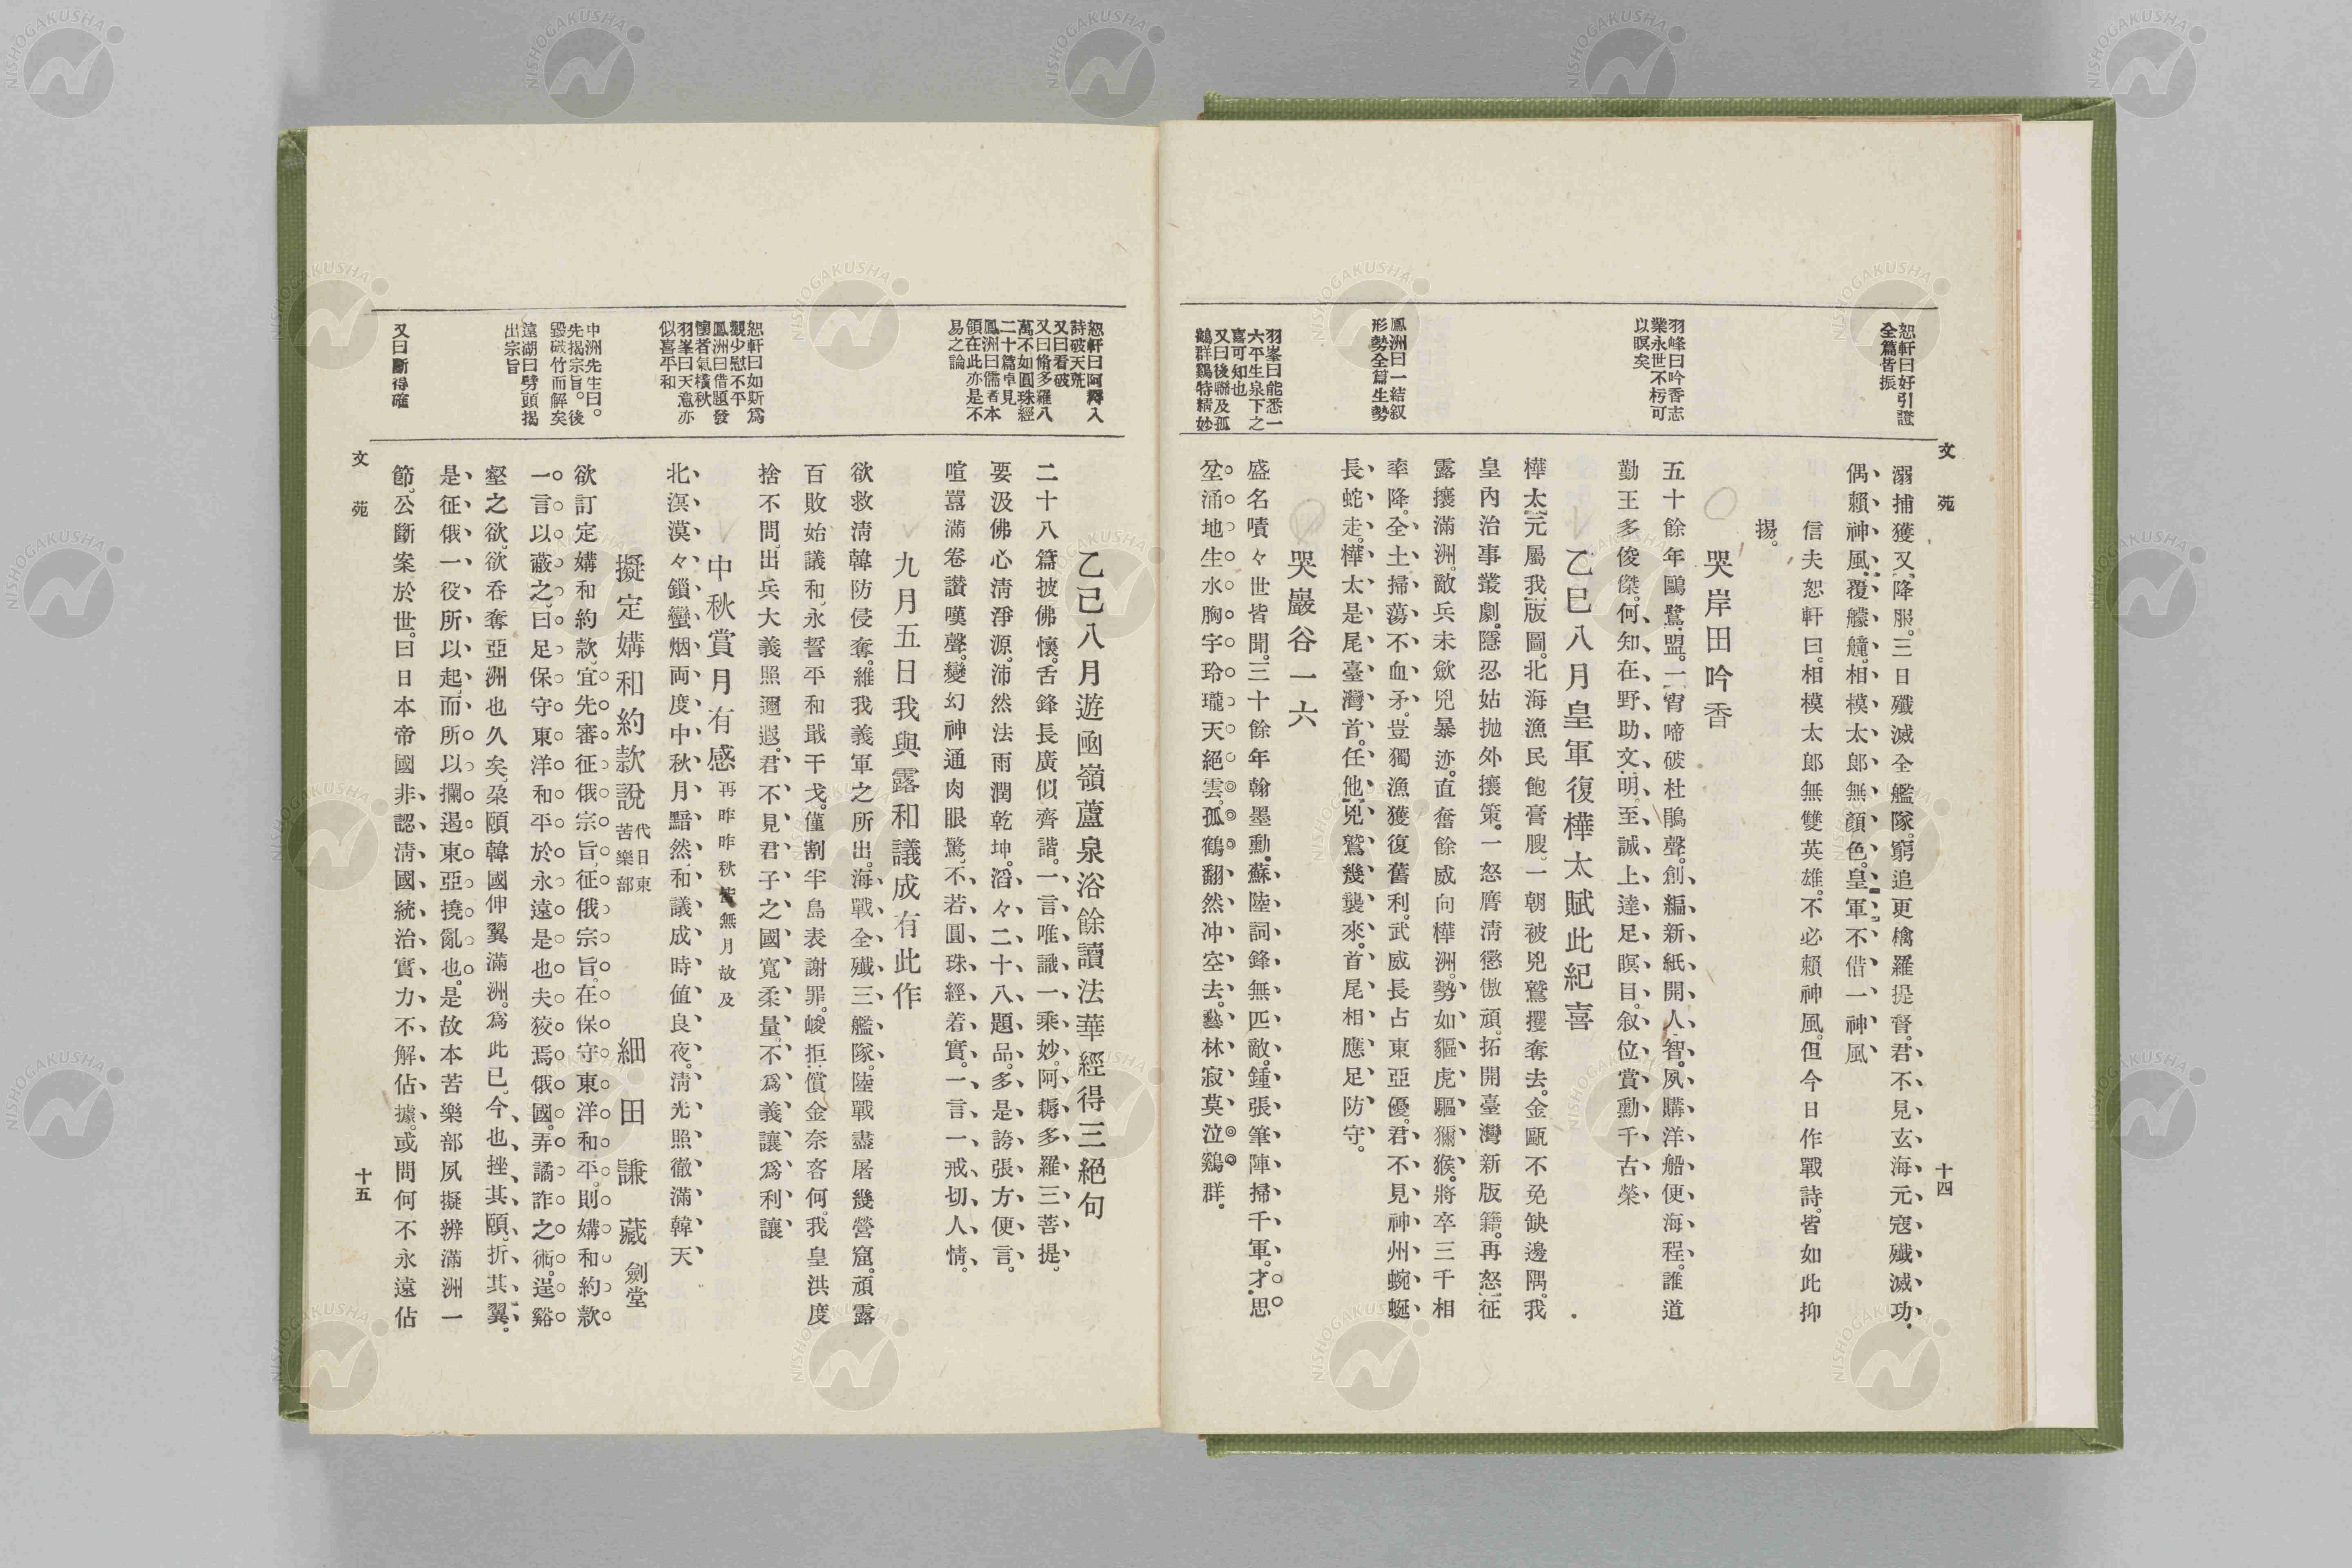 文苑
十四
恕軒曰好引證
全篇皆振
溺捕獲又降服。三日殲滅全艦隊。窮追更檎羅提督。君不見玄海元寇殲滅功、
偶賴神風覆艨艟。相模太郎無顔色。皇軍不借一神風
信夫恕軒曰。相模太郎無雙英雄。不必賴神風。但今日作戰詩。皆如此抑
揚。
哭岸田吟香
羽峰曰吟香志
業永世不朽可
以瞑矣
五十餘年鷗鷺盟。一宵啼破杜鵑聲。創編新紙開人智。夙購洋船便海程。誰道
勤王多俊傑。何知在野助文明。至誠上達足瞑目。叙位賞勳千古榮
乙巳八月皇軍復樺太賦此紀喜
樺太元屬我版圖。北海漁民飽膏腴。一朝被兇鷲攫奪去。金甌不免缺邊隅。我
皇內治事叢劇。隱忍姑拋外攘策。一怒膺淸懲傲頑。拓開臺灣新版籍。再怒征
露攘滿洲。敵兵未歛兇暴迹。直奮餘威向樺洲。勢如貙虎驅獮猴。將卒三千相
率降。全土掃蕩不血矛。豈獨漁獲復舊利。武威長占東亞優。君不見神州蜿蜒
長蛇走。樺太是尾臺灣首。任他兇鷲幾襲來。首尾相應足防守。
鳳洲曰一結叙
形勢全篇生勢
哭巖谷一六
羽峯曰能悉一
六平生泉下之
喜可知也
又曰後聯及孤
鶴群鷄特精妙
盛名嘖々世皆聞。三十餘年翰墨勳。蘇陸詞鋒無匹敵。鍾張筆陣掃千軍。才思
坌涌地生水。胸宇玲瓏天絕雲。孤鶴翻然冲空去。藝林寂莫泣鷄群。
乙巳八月遊凾嶺蘆泉浴餘讀法華經得三絕句
恕軒曰阿耨入
詩破天荒
又曰看破
又曰脩多羅八
萬不如圓珠經
二十篇卓見
鳳洲曰儒者本
領在此亦是不
易之論
二十八篇披佛懷。舌鋒長廣似齊諧。一言唯識一乘妙。阿耨多羅三菩提。
要汲佛心淸淨源。沛然法雨潤乾坤。滔々二十八題品。多是誇張方便言。
喧囂滿卷讃嘆聲。變幻神通肉眼驚。不若圓珠經着實。一言一戒切人情。
九月五日我與露和議成有此作
欲救淸韓防侵奪。維我義軍之所出。海戰全殲三艦隊。陸戰盡屠幾營窟。頑露
百敗始議和。永誓平和戢干戈。僅割半島表謝罪。峻拒償金奈吝何。我皇洪度
捨不問。出兵大義照邇遐。君不見君子之國寬柔量。不爲義讓爲利讓
恕軒曰如斯爲
觀少慰不平
鳳洲曰借題發
懷者氣橫秋
羽峯曰天意亦
似喜平和
中秋賞月有感 再昨昨秋皆無月故及
北溟漠々鎖蠻烟。両度中秋月黯然。和議成時値良夜。淸光照徹滿韓天
擬定媾和約款說 代日東苦樂部 細田謙藏 劍堂
中洲先生曰。
先揭宗旨。後
毀破竹而解矣
遠湖曰劈頭揭
出宗旨
又曰斷得確
欲訂定媾和約款。宜先審征俄宗旨。征俄宗旨。在保守東洋和平。則媾和約款
一言以蔽之。曰足保守東洋和平於永遠是也。夫狡焉俄國。弄譎詐之術。逞谿
壑之欲。欲呑奪亞洲也久矣。朶頤韓國。伸翼滿洲。爲此已。今也挫其頤。折其翼。
是征俄一役所以起。而所以攔遏東亞撓亂也。是故本苦樂部夙擬辨滿洲一
節。公斷案於世。曰日本帝國非認淸國統治實力。不解佔據。或問何不永遠佔
文苑
十五